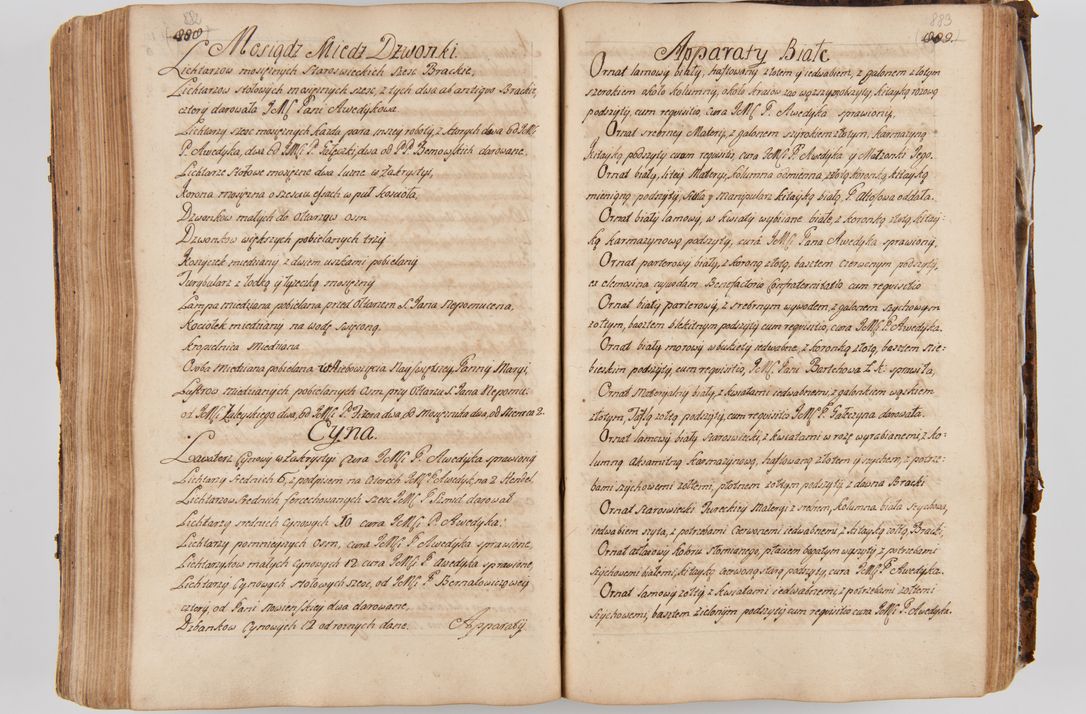 882
880
Mosiądz Miedz Dzwonki.
Lichtarzow mosiężnych staroswieckich szesc Brackie,
Lichtarzow stołowych mosiężnych szesc, z tych dwa ab antiquo Brackie,
cztery darowała JeMć Pani Awedykowa
Lichtarzy szesc mosiężnych każda para inszey roboty, z ktorych dwa od JeMć
P. Awedyka, dwa od JeMć P. Gałeczki, dwa od PP. Bemowskich darowane.
Lichtarze stołowe mosiężne dwa luzne w Zakrystyi,
Korona mosiężna o szesciu efach w puł Koscioła,
Dzwonkow małych do Ołtarzow osm
Dzwonkow większych pobielanych trzy
Koszyczek miedziany z dwiem uszkami pobielany
Turybularz z łodką y łyszeczką mosiężny
Lampa miedziana pobielana przed Ołtarzem S. Jana Nepomucena,
Kociołek miedziany na wodę swięconą,
Kropielnica miedziana
Osoba miedziana pobielana Wniebowzięcia Nayswiętszey Panny Maryi,
Lustrow miedzianych pobielanych osm przy Ołtarzu S. Jana Nepomu:
Cyna.
Lawaterz Cynowy w Zakrystyi cura JeMći P. Awedyka sprawiony
Lichtarzy srednich 6, z podpisem na dwoch JeMć P. Awedyk na 2 Hendel
Lichtarzow srednich szesc JeMć P. Szmid darował
Lichtarzy srednich Cynowych 10 cura JeMći P. Awedyka.
Lichtarzy pomnieyszych osm, cura JeMći P. Awedyka sprawione,
Lichtarzykow małych Cynowych 12 cura JeMći P. Awedyka sprawione,
Lichtarzy Cynowych stołowych szesc, od JeMći P. Bernatowiczowey
cztery, od Pani dwa darowane,
Dzbankow Cynowych 12 od roznych dane. Apparaty
883
Apparaty Białe
Ornat lamowy biały, haftowany złotem y iedwabiem, z galonem złotym
szerokiem około kolumny, około kraiow zas węższym obszyty, kitayką rożową
podszyty, cum requisitis, cura JeMć P. Awedyka sprawiony,
Ornat srebrney Materyi, z galonem szyrokiem złotym, karmazyną
kitayką, podszyty cum requisitis, cura JeMć P. Awedyka y Małzonki Jego.
Ornat biały, litey Materyi, kolumna odmienna, złotą koronką, kitayką
mienioną podszyty, stuła y manipularz kitayką białą, P. Attofowa oddała.
Ornat biały lamowy, w kwiaty wybiiane białe, z koronką złotą, kitay:
ką karmazynową podszyty, cura JeMć Pana Awedyka sprawiony,
Ornat parterowy biały, z koroną złotą, basztem czerwonym podszyty,
ex elemosina cywodam Benefactoris Confraternitatis cum requisitis
Ornat biały parterowy, z srebrnym wywodem, z galonem szychowym
żołtym, basztem błekitnym podszyty cum requisitis, cura JeMć P. Awedyka.
Ornat biały morowy w bukiety iedwabne, z koronką złotą, basztem nie:
bieskim podszyty, cum requisitis, JeMć Pani Bartchowa Z. K. sprawiła,
Ornat Materyalny biały, z kwiatami iedwabnemi, z galonkiem wąskiem
złotym, Taftą żołtą podszyty, cum requisitis JeMć P. Gałeczyna darowała.
Ornat lamowy biały staroswiecki, z kwiatami w rożę wyrabianemi, z ko:
lumną aksamitną karmazynową, haftowaną złotem y szychem, z potrze:
bami szychowemi żołtemi, płotnem żołtym podszyty z dawna Bracki
Ornat staroswiecki Tureckiey Materyi z srebrem, kolumna biała szychowa,
iedwabiem szyta, z potrzebami czerwonemi iedwabnemi, z kitayką żołtą, Bracki,
Ornat atłasowy koloru słomianego, ptactem bogatym wyszyty, z potrzebami
szychowemi białemi, kitayką czerwoną starą podszyty, cura JeMć P. Awedyka.
Ornat lamowy żołty z kwiatami iedwabnemi, z potrzebami żołtemi
szychowemi, basztem zielonym podszyty cum requisitis cura JeMć P. Awedyka.